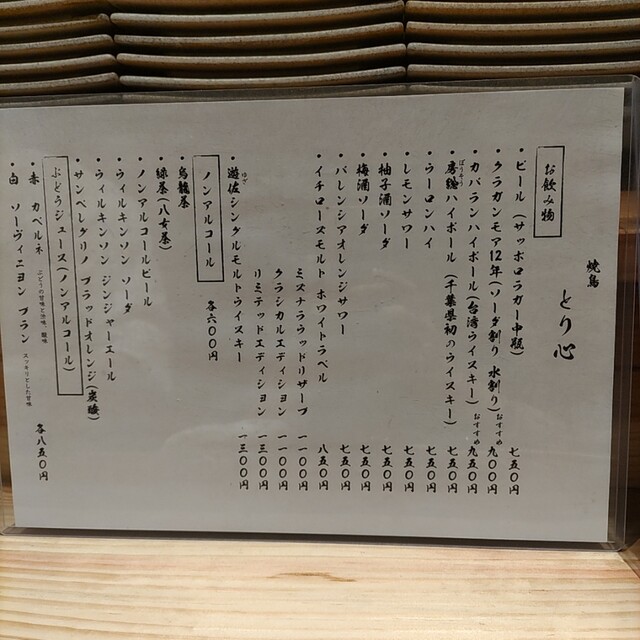 焼鳥 とり心
お飲み物
・ビール（サッポロラガー中瓶） 七五〇円
・クラガンモア12年（ソーダ割り 水割り）おすすめ 九〇〇円
・カバランハイボール（台湾ウイスキー）おすすめ 九五〇円
・房総ハイボール（千葉県初のウイスキー） 七五〇円
・ウーロンハイ 七五〇円
・レモンサワー 七五〇円
・柚子酒ソーダ 七五〇円
・梅酒ソーダ 七五〇円
・バレンシアオレンジサワー 七五〇円
・イチローズモルト ホワイトラベル 八五〇円
ミズナラウッドリザーブ 一一〇〇円
クラシカルエディション 一一〇〇円
リミテッドエディション 一三〇〇円
・遊佐シングルモルトウイスキー 一三〇〇円
ノンアルコール 各六〇〇円
・烏龍茶
・緑茶（八女茶）
・ノンアルコールビール
・ウィルキンソン ソーダ
・ウィルキンソン ジンジャーエール
・サンペレグリノ ブラッドオレンジ（炭酸）
ぶどうジュース（ノンアルコール）
・赤 カベルネ ぶどうの甘味と渋味、酸味
・白 ソーヴィニヨン ブラン スッキリとした甘味 各八五〇円